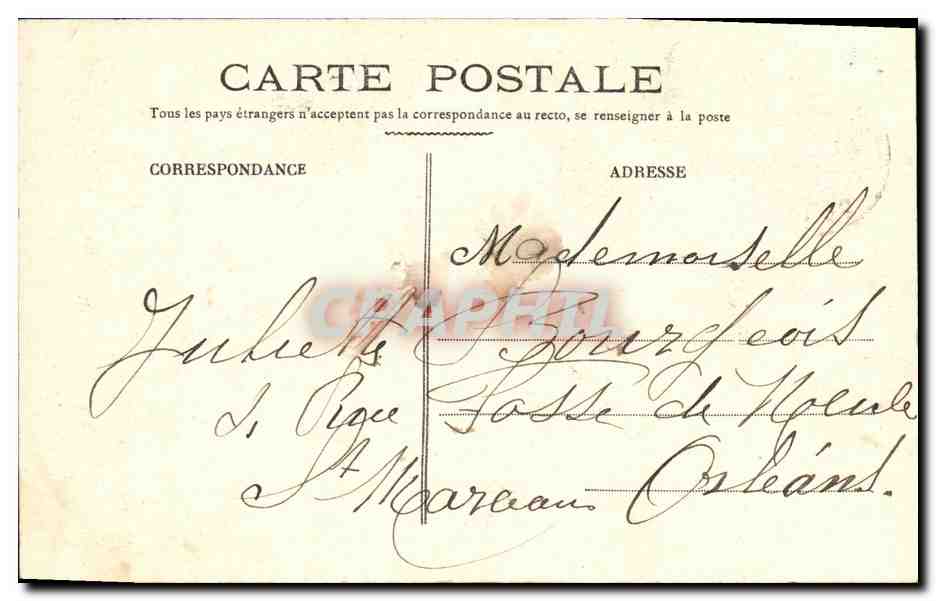 CARTE POSTALE
Tous les pays étrangers n'acceptent pas la correspondance au recto, se renseigner à la poste
CORRESPONDANCE
ADRESSE
Mademoiselle
Juliette Bourgeois
Rue Fosse de
St Marceau Orléans.
CPAPHIL